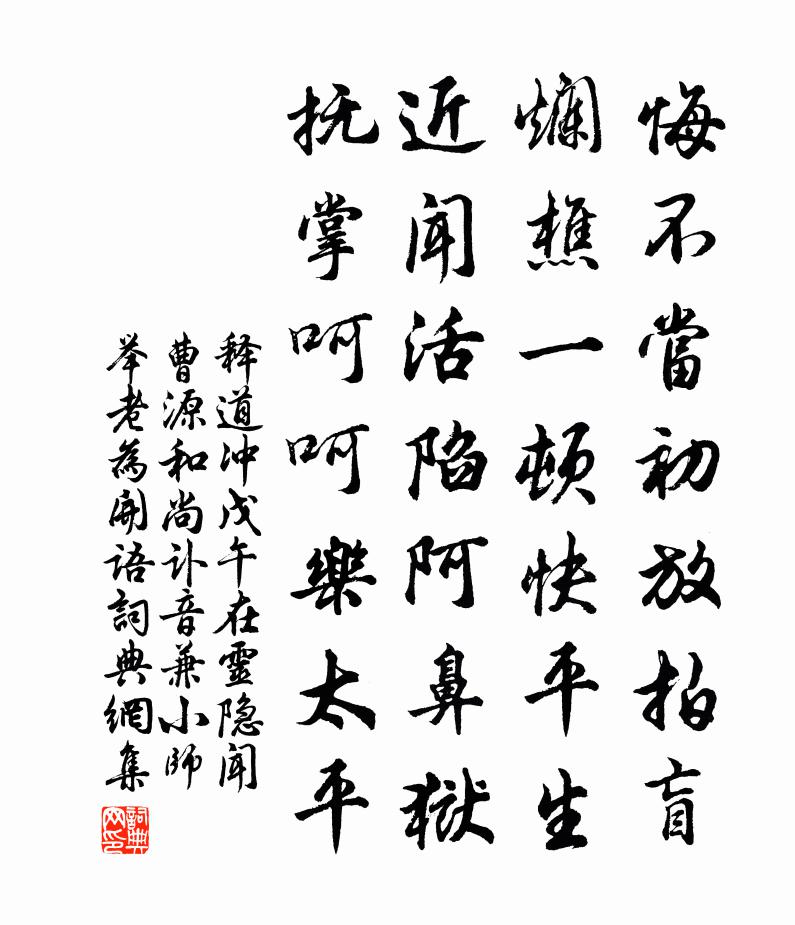 悔不當初放拍盲
爛樵一頓快平生
近聞活陷阿鼻獄
抚掌呵呵樂太平
释道冲戊午在靈隐聞
曹源和尚讣音兼小師
举老為開語詞典網集
詞典网印